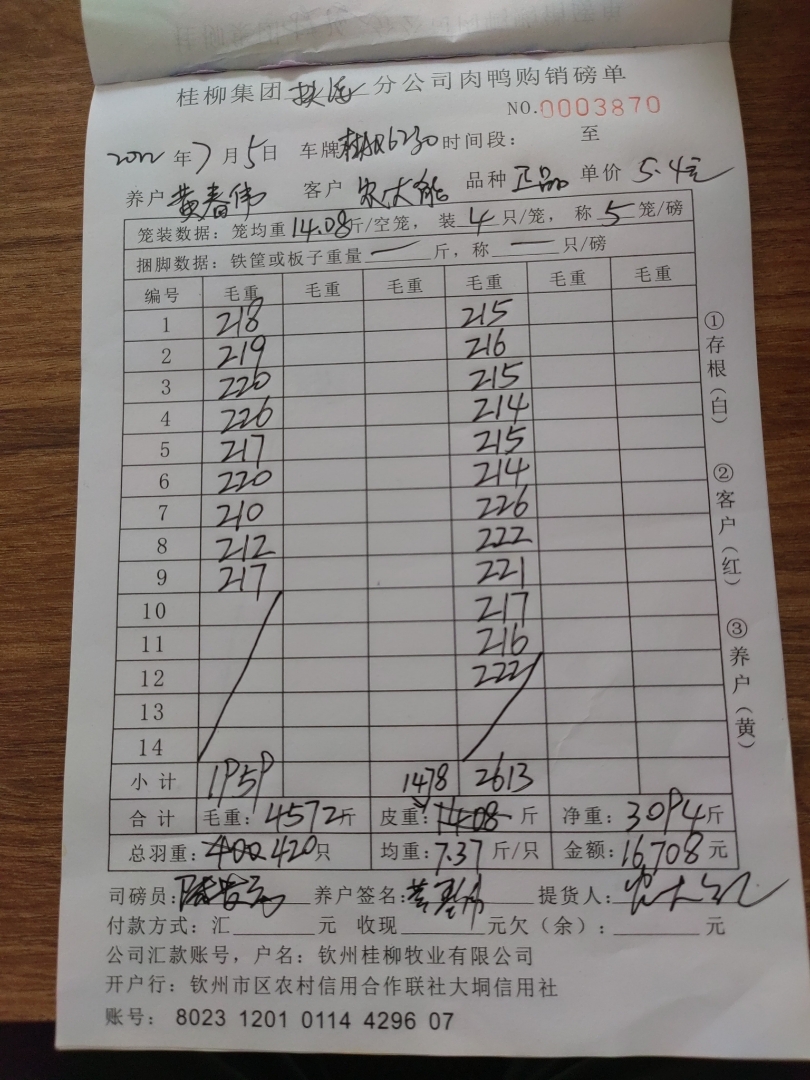 桂柳集团 分公司肉鸭购销磅单
NO.0003870
2022年7月5日 车牌 6230 时间段： 至
养户 黄春伟 客户 品种 正品 单价 5.4元
笼装数据：笼均重14.08斤/空笼，装4只/笼，称5笼/磅
捆脚数据：铁筐或板子重量—斤，称—只/磅
编号 毛重 毛重 毛重 毛重 毛重 毛重
1 218 215
2 219 216
3 220 215
4 226 214
5 217 215
6 220 214
7 210 226
8 212 222
9 217 221
10 217
11 216
12 222
13
14
小计 1959 1478 2613
合计 毛重：4572斤 皮重：1408斤 净重：3094斤
总羽重：400 420只 均重：7.37斤/只 金额：16,708元
司磅员： 养户签名： 提货人：
付款方式：汇 元 收现 元欠（余）： 元
公司汇款账号，户名：钦州桂柳牧业有限公司
开户行：钦州市区农村信用合作联社大垌信用社
账号：8023 1201 0114 4296 07
①存根（白）
②客户（红）
③养户（黄）